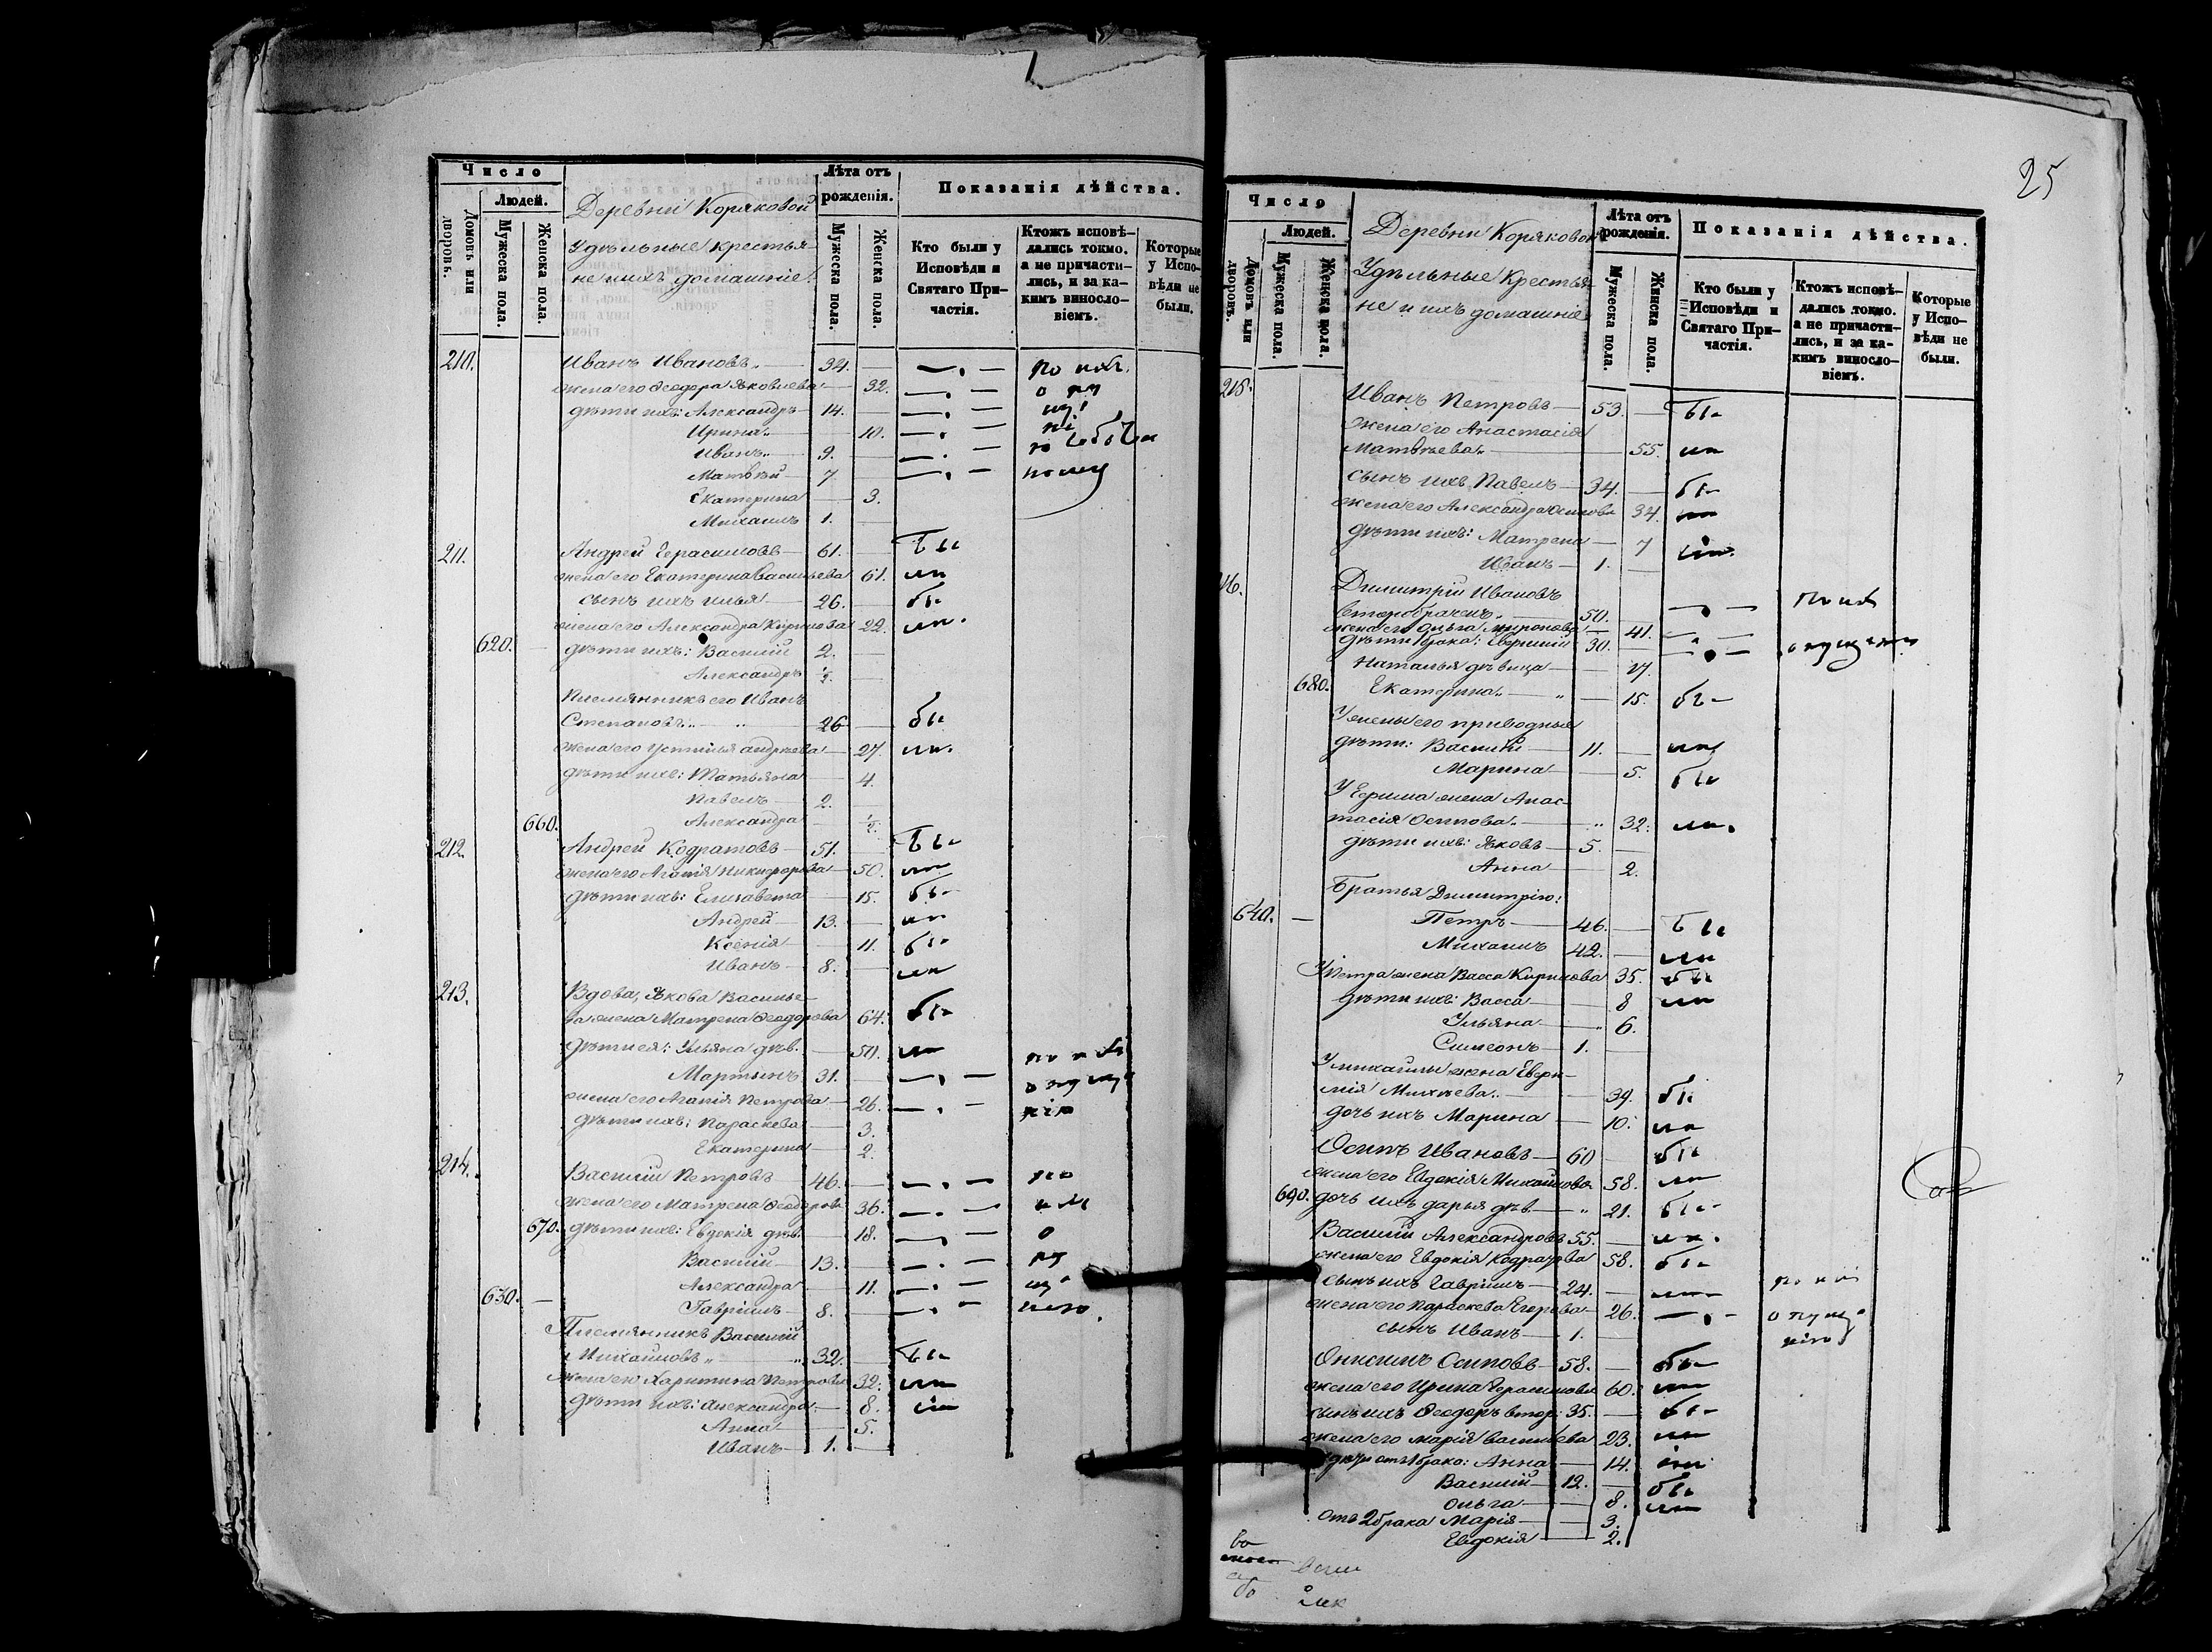 Число
Людей.
Домовъ или дворовъ.
Мужеска пола.
Женска пола.
Деревни Коряковой
Удѣльные крестья-
не и ихъ домашніе.
Лѣта отъ рожденія.
Мужеска пола.
Женска пола.
Показанія дѣйства.
Кто были у Исповѣди и Святаго При-частія.
Ктожъ исповѣ-дались токмо. а не причасти-лись, и за ка-кимъ винослo-віемъ.
Которые у Испо-вѣди не были.
210. Иванъ Ивановъ 34. по неб
жена его Ѳеодора Яковлева 32. о пу
дѣти ихъ: Александръ 14. щ
Ирина 10.
Иванъ 9.
Матвѣй 7
Екатерина 3.
Михаилъ 1.
211. Андрей Герасимовъ 61. бы
жена его Екатерина Васильева 61. ли
сынъ ихъ Илья 26. бы
жена его Александра Кирилова 22. ли.
620. дѣти ихъ: Василій 2.
Александръ ½.
Племянникъ его Иванъ
Степановъ 26 бы
жена его Устинья Андреева 27. ли.
дѣти ихъ: Татьяна 4.
Павелъ 2.
660. Александра ½.
212. Андрей Кодратовъ 51. бы
жена его Агапія Никифорова 50. ли
дѣти ихъ: Елизавета 15. бы
Андрей 13. ли
Ксенія 11. бы
Иванъ 8. ли
213. Вдова, Якова Василье-
ва жена Матрена Ѳеодорова 64. бы
дѣти ея: Ульяна дѣв. 50. ли по неб
Мартынъ 31. опущ
жена его Агапія Петрова 26. нію
дѣти ихъ: Параскева 3.
Екатерина 2.
214. Василій Петровъ 46. по
жена его Матрена Ѳеодорова 36.
670. дѣти ихъ: Евдокія дѣв. 18. о
Василій 13. пу
Александра 11. ще
630. Гавріилъ 8. нію.
Племянникъ Василій
Михайловъ 32. бы
жена его Харитина Петрова 32. ли
дѣти ихъ: Александра 8.
Анна 5.
Иванъ 1.
25
Число
Людей.
Домовъ или дворовъ.
Мужеска пола.
Женска пола.
Деревни Коряковой
Удѣльные Крестья-
не и ихъ домашніе
Лѣта отъ рожденія.
Мужеска пола.
Женска пола.
Показанія дѣйства.
Кто были у Исповѣди и Святаго При-частія.
Ктожъ исповѣ-дались токмо. а не причасти-лись, и за ка-кимъ винослo-віемъ.
Которые у Испо-вѣди не были.
215. Иванъ Петровъ 53. бы
жена его Анастасія
Матвѣева 55. ли
сынъ ихъ Павелъ 34. бы
жена его Александра Осипова 34. ли
дѣти ихъ: Матрена 7
Иванъ 1.
216. Димитрій Ивановъ
второбрачень 50. по не
жена его Ольга Миронова 41.
дѣти 1 брака: Евфимій 30. опущенію
Наталья дѣвица 17.
680. Екатерина 15. бы
У жены его приводныя
дѣти: Василій 11. ли
Марина 5. бы
У Ефима жена Анас-
тасія Осипова 32. ли.
дѣти ихъ: Яковъ 5.
Анна 2.
Братья Димитрію:
640. Петръ 46. бы
Михаилъ 42. ли
У Петра жена Васса Кирилова 35. бы
дѣти ихъ: Васса 8 ли
Ульяна 6.
Симеонъ 1.
У Михайлы жена Евфи-
мія Михѣева 39. бы
дочь ихъ Марина 10. ли
Осипъ Ивановъ 60 бы
жена его Евдокія Михайлова 58. ли
690. дочь ихъ Дарья дѣв. 21. бы
Василій Александровъ 55. ли.
жена его Евдокія Кодратова 58. бы
сынъ ихъ Гавріилъ 24. ли по не
жена его Параскева Егорова 26. опуще
сынъ Иванъ 1. нію
Онисимъ Осиповъ 58. бы
жена его Ирина Герасимова 60. ли
сынъ ихъ Ѳеодоръ втор. 35. бы
жена его Марія Васильева 23. ли
дѣти отъ 1 брака: Анна 14.
Василій 12. бы
Ольга 8. ли
Отъ 2 брака Марія 3.
Евдокія 2.